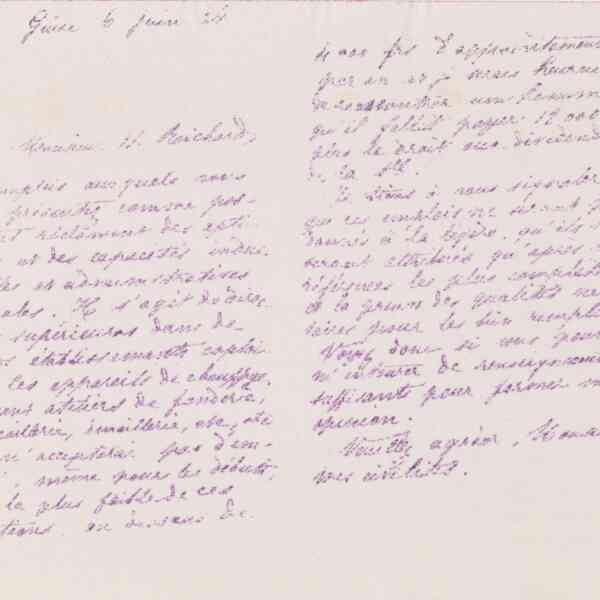 Guise 6 juin 24
Monsieur H. Reichard,
emplois auxquels vous
présentez comme pos-
réclament des apti-
et des capacités indus-
et administratives
Il s'agit de direc-
supérieures dans de
établissements exploi-
les appareils de chauffage,
ateliers de fonderie,
émaillerie, etc., etc
accepterai pas d'em-
même pour les débuts,
la plus faible de ces
au dessous de
4000 frs d'appointements
par an et je serais heureux
de rencontrer un homme
qu'il fallut payer 12 000
plus le droit aux dividendes
de la Sté.
Je tiens à vous signaler
que ces emplois ne seront
donnés à la légère, qu'ils
seront attribués qu'après
références les plus complètes
et la preuve des qualités
pour les bien remplir
Voyez donc si vous pouvez
de renseignements
suffisants pour former
opinion.
Veuillez agréer, Monsieur
mes civilités.